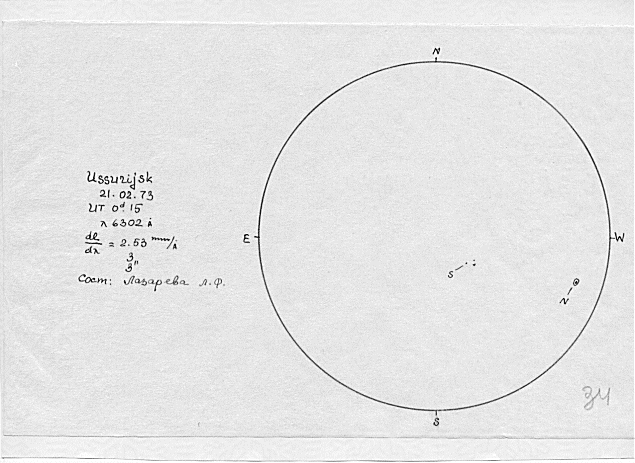 N
Ussurijsk
21.02.73
UT 0ᵈ.15
λ 6302 Å
dl/dλ = 2.53 mm/Å
3
3"
Сост: Лазарева Л.Ф.
E
W
S
N
34
S